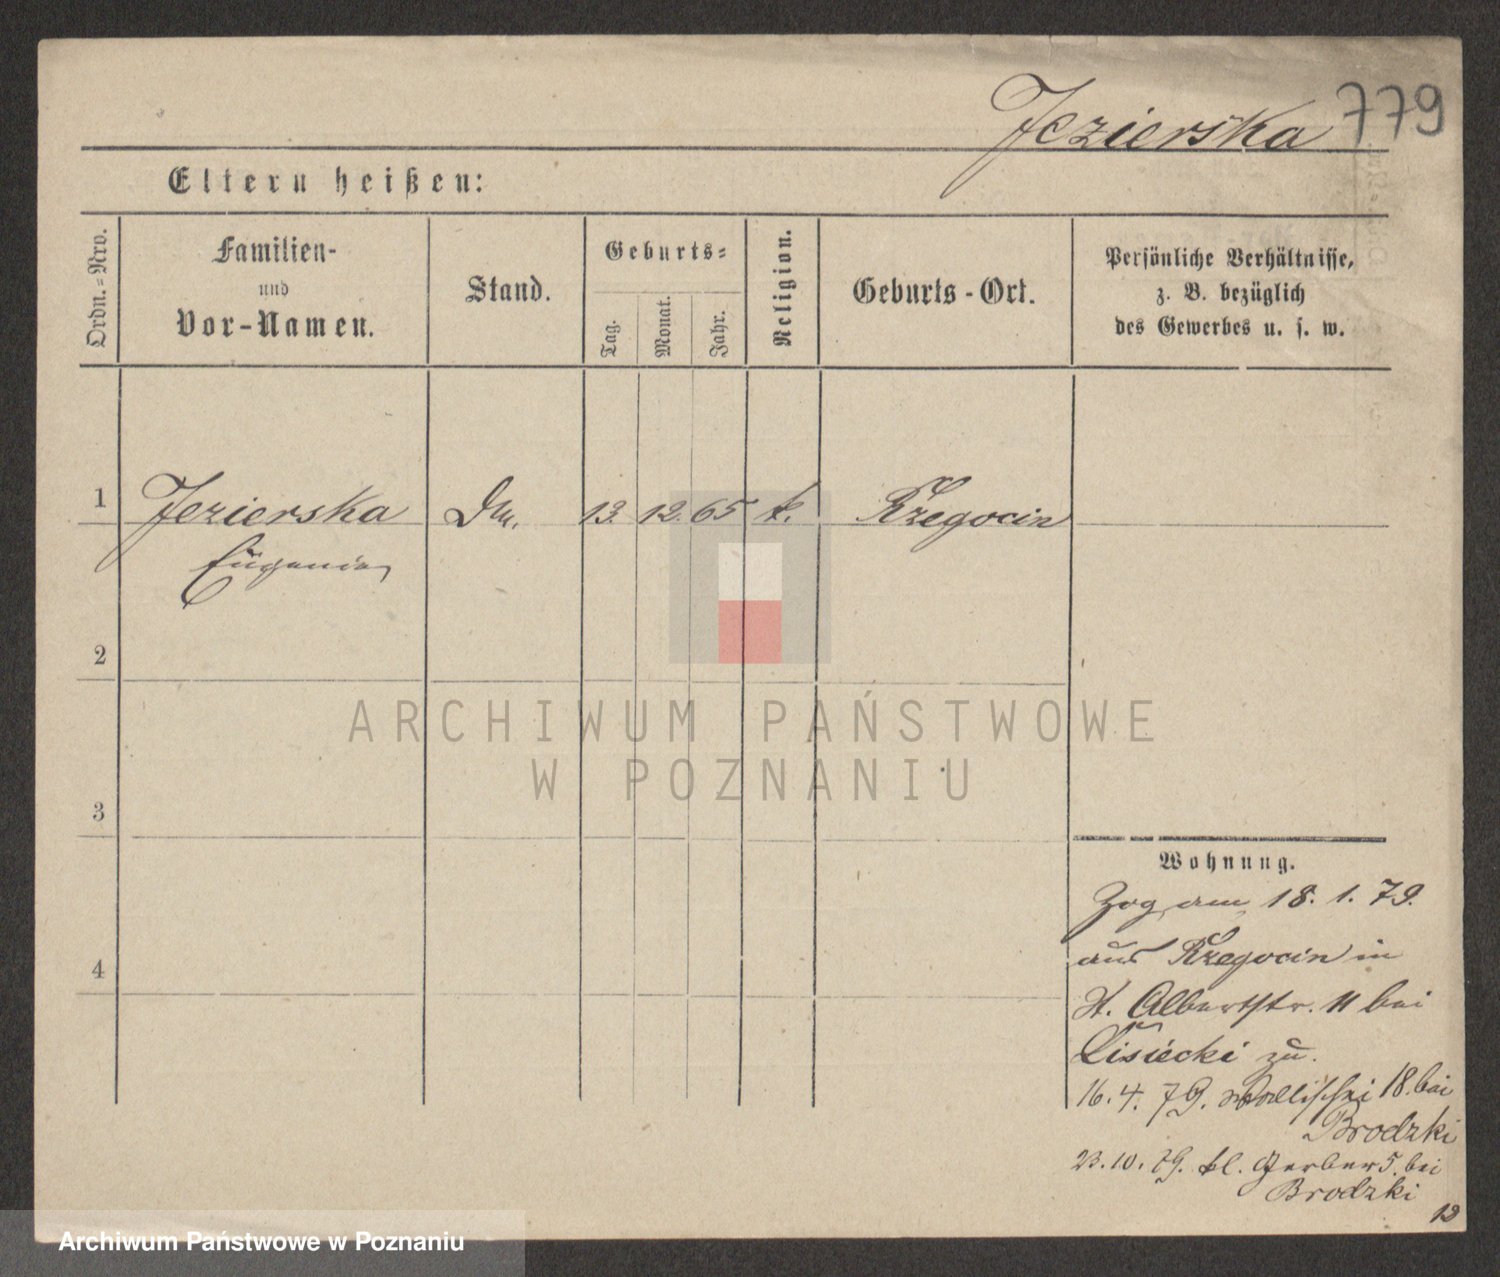 Jezierska 779
Eltern heißen:
Ordn.=Nro.
Familien-
und
Vor-Namen.
Stand.
Geburts=
Tag.
Monat.
Jahr.
Religion.
Geburts-Ort.
Persönliche Verhältnisse,
z. B. bezüglich
des Gewerbes u. s. w.
1 Jezierska 13. 12. 65 k. Rzegocin
Eugenia
2
3
4
Wohnung.
Zog am 18. 1. 79.
aus Rzegocin in
St. Albertstr. 11 bei
Lisiecki zu.
16. 4. 79. Wallischei 18. bei
Brodzki
23. 10. 79. kl. Gerber 5. bei
Brodzki
12
ARCHIWUM PAŃSTWOWE
W POZNANIU
Archiwum Państwowe w Poznaniu